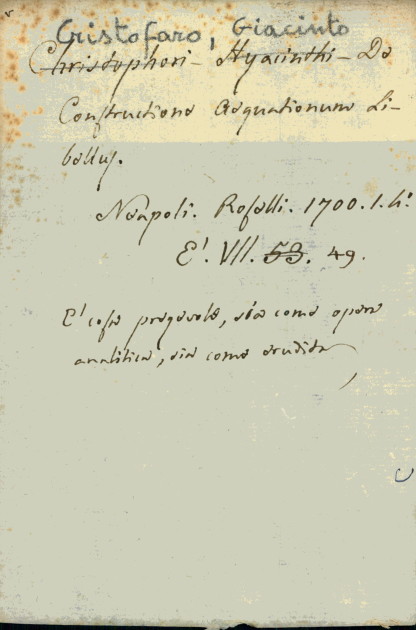 Cristofaro, Giacinto
Christophori - Hyacinthi - De
Constructione Aequationum Li-
bellus.
Neapoli. Roselli. 1700. 1. 4.º
E'. VII. 53. 49.
E' cosa pregevole, sia come opera
analitica, sia come erudita